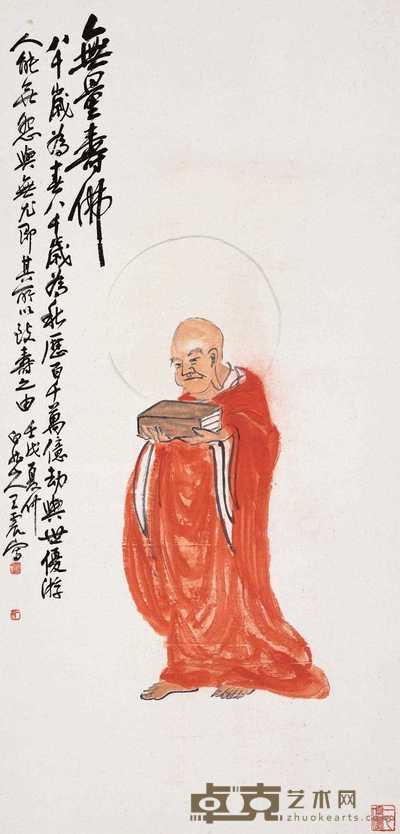 無量壽佛
八千歲為春八千歲為秋歷百千萬億劫與世優游
人能無怨與無尤即其所以致壽之由
壬戌夏仲
白龍山人王震寫
卓克艺术网
zhuokearts.com